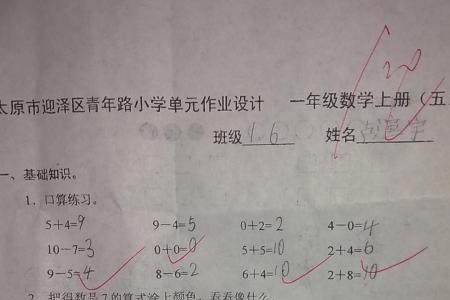 太原市迎泽区青年路小学单元作业设计 一年级数学上册（五
班级1.6 姓名
一、基础知识。
1. 口算练习。
5+4=9 9-4=5 0+2=2 4-0=4
10-7=3 0+0=0 5+5=10 2+4=6
9-5=4 8-6=2 6+4=10 2+8=10
2. 把得数是7的算式涂上颜色，看看像什么